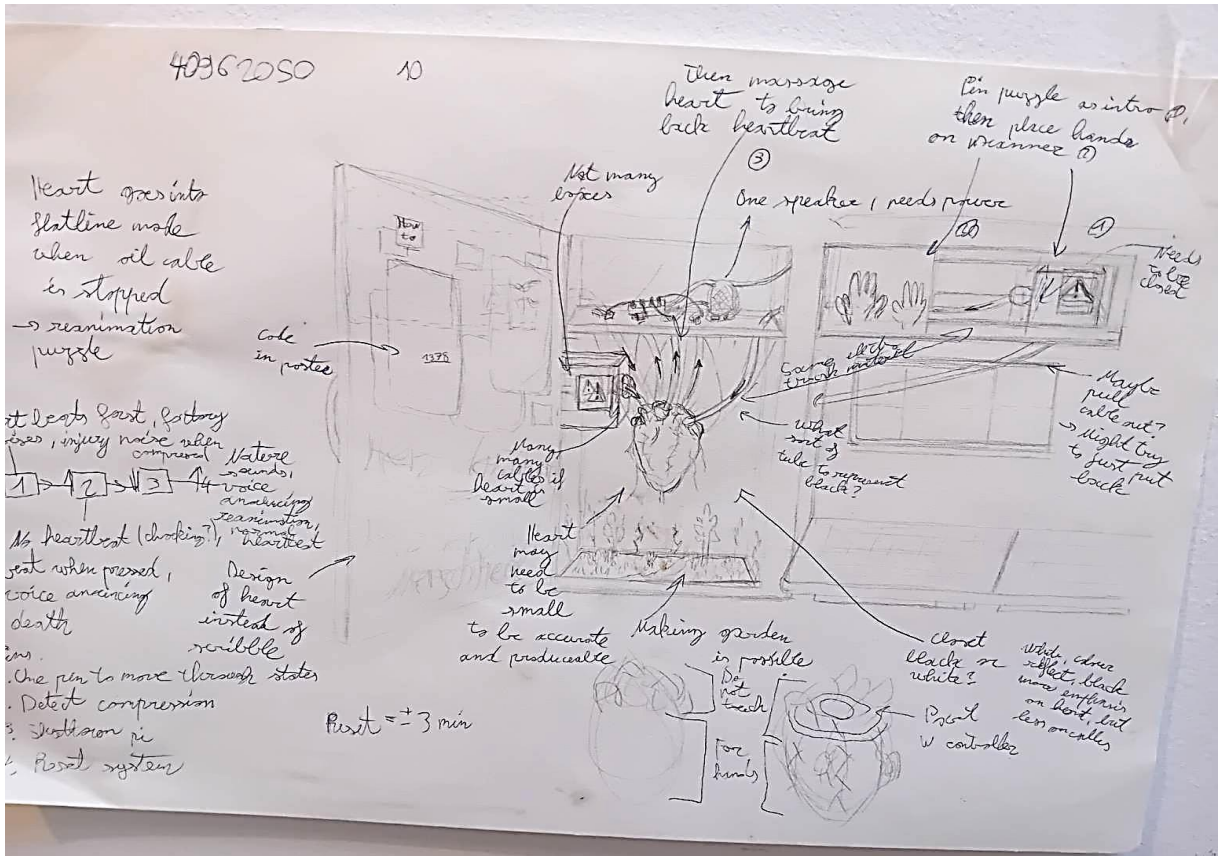 40962050
10
Then massage
heart to bring
back heartbeat
③
Pin puzzle as intro ①,
then place hands
on scanner ②
Not many
boxes
One speaker, needs power
①
Needs
to be
closed
Heart goes into
flatline mode
when oil cable
is stopped
→ reanimation
puzzle
How
to
Code
in poster
1378
Some
Maybe
pull
cable out?
→ Might try
to just put
back
What
sort of
tube to represent
black?
Many
many
cables if
heart is
small
beats fast, factory
injury noise when
compressed
1
2
3
4
Nature
sounds,
voice
announcing
reanimation,
normal
heartbeat
No heartbeat (choking?),
when pressed,
voice announcing
death
Design
of heart
instead of
scribble
Heart
may
need
to be
small
to be accurate
and produceable
Making garden
is possible
closet
black or
white?
white,
reflect, black
more emphasis
on heart, but
less on cables
One pin to move through states
Detect compression
pi
Reset system
Reset = ± 3 min
Do
not
touch
For
hands
w controller